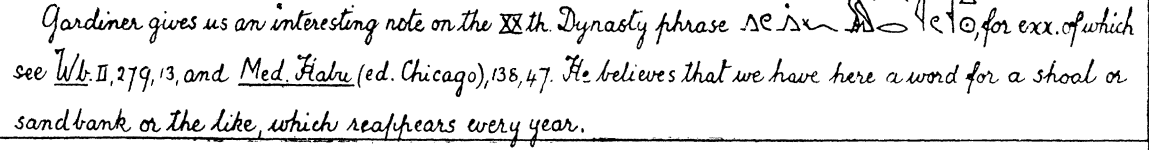 Gardiner gives us an interesting note on the XXth. Dynasty phrase , for exx. of which
see Wb. II, 279, 13, and Med. Habu (ed. Chicago), 138, 47. He believes that we have here a word for a shoal or
sandbank or the like, which reappears every year.